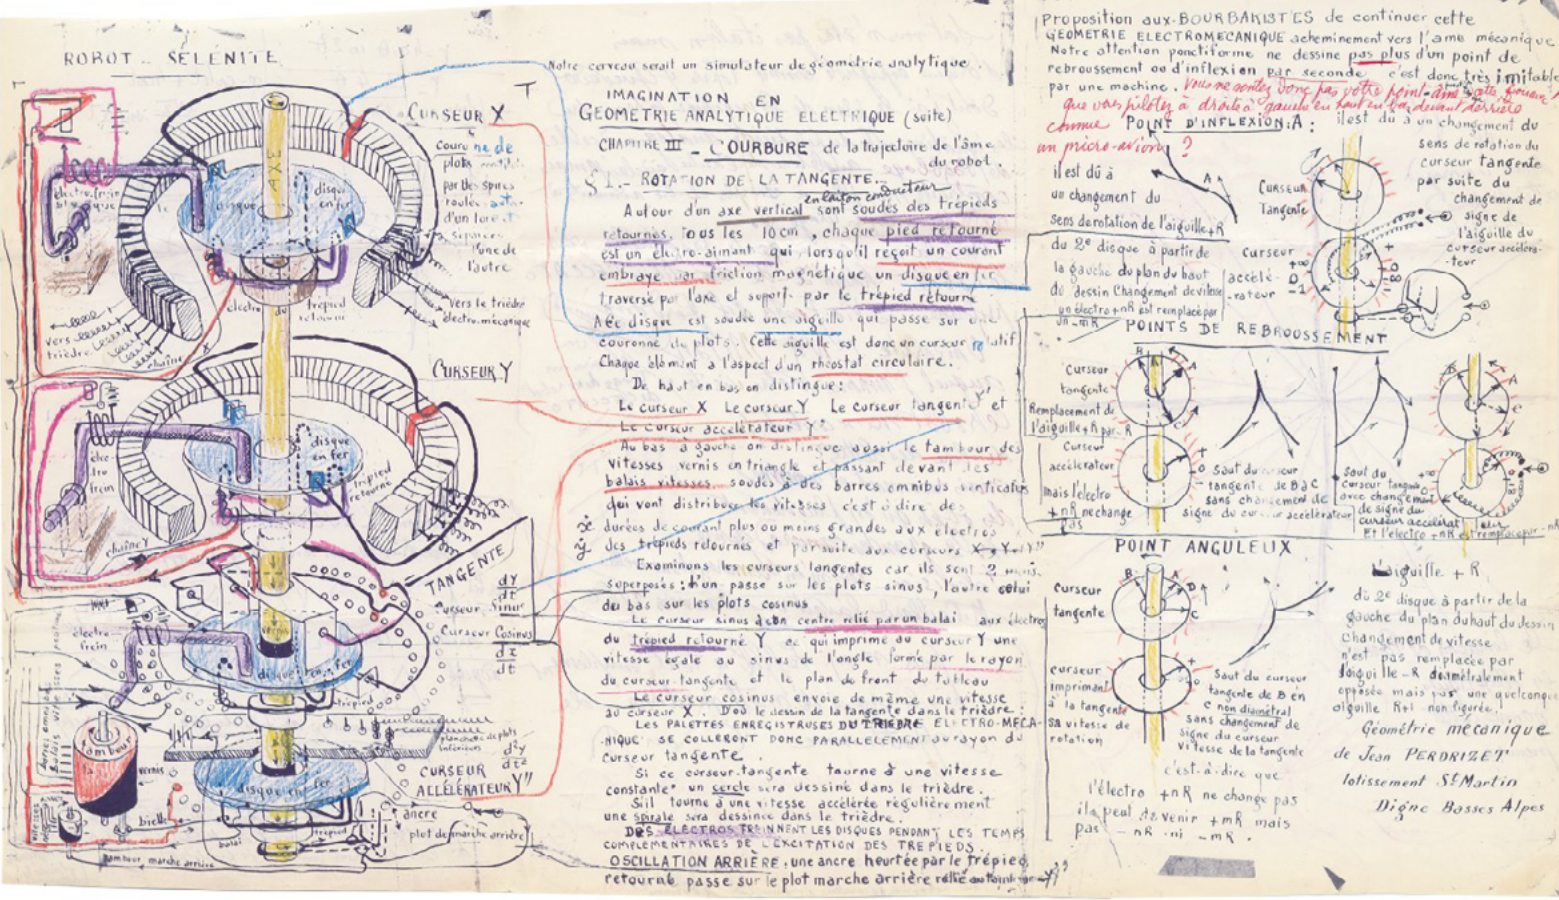 ROBOT SELENITE
CURSEUR X
couronne de
plots
par des spires
roulées
d'un tore
séparées
l'une de
l'autre
AXE
disque
en fer
electro-frein
electro
du
trépied
retourné
vers le trièdre
électro.mécanique
vers
trièdre
chaîne X
CURSEUR Y
disque
en fer
trépied
retourné
elec-
tro
frein
chaîne Y
TANGENTE
dy
dt
Curseur Sinus
Curseur Cosinus
dx
dt
electro
frein
disque en fer
trépied
tambour
vernis
planche de plots
d²y
dt²
CURSEUR
ACCÉLÉRATEUR Y"
disque en fer
bielle
balai
trépied
ancre
plot de marche arrière
tambour marche arrière
Notre cerveau serait un simulateur de géometrie analytique
IMAGINATION EN
GÉOMETRIE ANALYTIQUE ELECTRIQUE (suite)
CHAPITRE III _ COURBURE de la trajectoire de l'âme
du robot.
§ I.- ROTATION DE LA TANGENTE._
en laiton conducteur
Autour d'un axe vertical sont soudés des trépieds
retournés. tous les 10 cm, chaque pied retourné
est un électro-aimant qui lorsqu'il reçoit un courant
embraye par friction magnétique un disque en fer
traversé par l'axe et suport. par le trépied retourné
A ce disque est soudée une aiguille qui passe sur une
couronne de plots. Cette aiguille est donc un curseur relatif
Chaque élément a l'aspect d'un rhéostat circulaire.
De haut en bas on distingue:
Le curseur X Le curseur Y Le curseur tangent Y' et
Le curseur accélérateur Y"
Au bas à gauche on distingue aussi le tambour des
vitesses vernis en triangle et passant devant les
balais vitesses soudés à des barres omnibus verticales
qui vont distribuer les vitesses c'est à dire des
durées de courant plus ou moins grandes aux électros
des trépieds retournés et par suite aux curseurs X, Y, Y', Y"
ẋ
ẏ
Examinons les curseurs tangentes car ils sont 2 mais
superposés: l'un passe sur les plots sinus, l'autre celui
du bas sur les plots cosinus
Le curseur sinus a son centre relié par un balai aux électros
du trépied retourné Y ce qui imprime au curseur Y une
vitesse égale au sinus de l'angle formé par le rayon
du curseur tangente et le plan de front du tableau
Le curseur cosinus envoie de même une vitesse
au curseur X D'où le dessin de la tangente dans le trièdre:
LES PALETTES ENREGISTREUSES DU TRIEDRE ELECTRO-MECA-
NIQUE SE COLLERONT DONC PARALLELEMENT au rayon du
curseur tangente.
Si ce curseur tangente tourne à une vitesse
constante un cercle sera dessiné dans le trièdre.
S'il tourne à une vitesse accélérée régulièrement
une spirale sera dessinée dans le trièdre.
DES ELECTROS FREINNENT LES DISQUES PENDANT LES TEMPS
COMPLEMENTAIRES DE L'EXCITATION DES TREPIEDS
OSCILLATION ARRIÈRE: une ancre heurtée par le trépied
retourné passe sur le plot marche arrière relié au tambour Y"
Proposition aux BOURBAKISTES de continuer cette
GÉOMETRIE ELECTROMECANIQUE acheminement vers l'ame mécanique
Notre attention ponctiforme ne dessine pas plus d'un point de
rebroussement ou d'inflexion par seconde c'est donc très imitable
par une machine. Vous ne sentez donc pas votre point-âme
que vous pilotez à droite à gauche en haut en bas devant derrière
comme
un micro-avion ?
POINT D'INFLEXION: A :
il est dû à un changement du
sens de rotation du
curseur tangente
par suite du
changement de
signe de
l'aiguille du
curseur accéléra-
teur
il est dû à
un changement du
sens de rotation de l'aiguille +R
du 2e disque à partir de
la gauche du plan du haut
du dessin Changement de vitesse
un électro +nR est remplacé par
un -mR
A
Curseur
Tangente
Curseur
accélé-
rateur
POINTS DE REBROUSSEMENT
Curseur
tangente
Remplacement de
l'aiguille +R par -R
Curseur
accélérateur
mais l'electro
+nR ne change
pas
Saut du curseur
tangente de B à C
sans changement de
signe du curseur accélérateur
Saut du
curseur tangente
avec changement
de signe du
curseur accélérateur
Et l'electro +nR est remplacé par -nR
POINT ANGULEUX
Curseur
tangente
B A D C
curseur
imprimant
à la tangente
sa vitesse de
rotation
Saut du curseur
tangente de B en
C non diamétral
sans changement de
signe du curseur
vitesse de la tangente
c'est-à-dire que
l'électro +nR ne change pas
il peut devenir +mR mais
pas -nR ni -mR.
L'aiguille +R
du 2e disque à partir de la
gauche du plan du haut du dessin
Changement de vitesse
n'est pas remplacée par
l'aiguille -R diamétralement
opposée mais par une quelconque
aiguille R+1 non figurée.
Géométrie mécanique
de Jean PERDRIZET
lotissement St Martin
Digne Basses Alpes